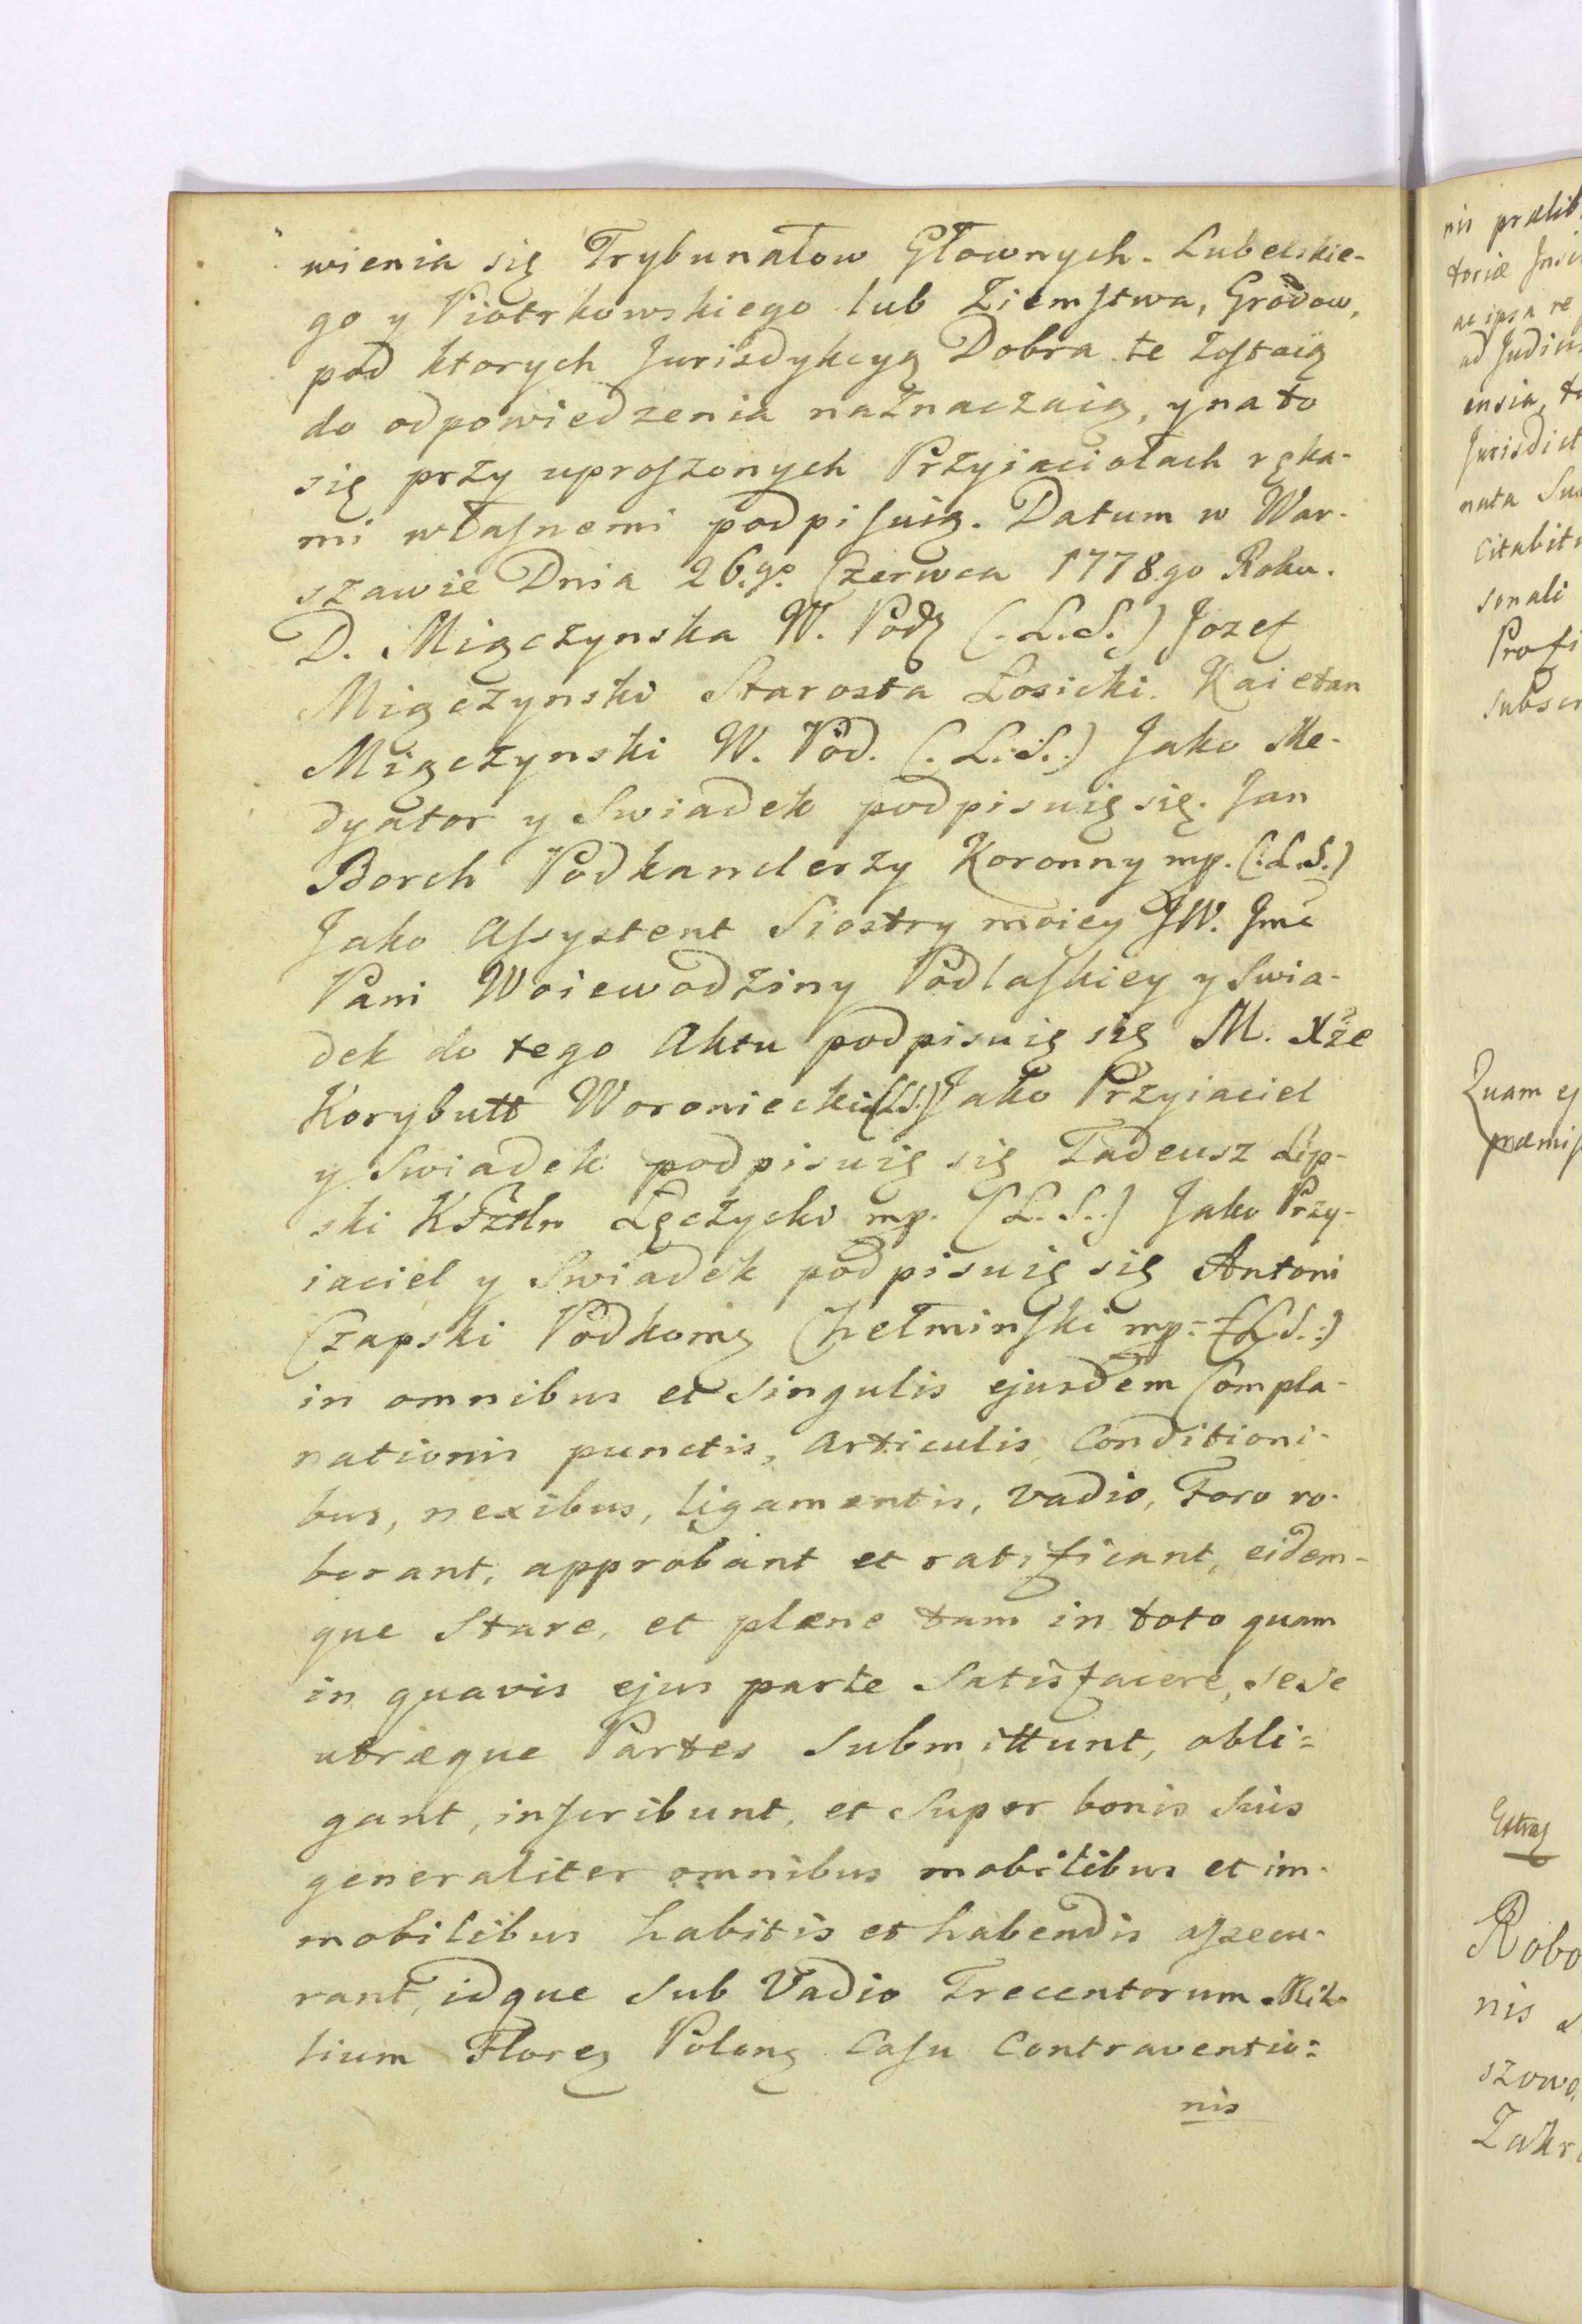 wienia się Trybunałow Głownych Lubelskie-
go y Piotrkowskiego lub Ziemstwa, Grodow,
pod ktorych Jurisdykcyą Dobra te zostaią
do odpowiedzenia naznaczaią, y na to
się przy uproszonych Przyiaciołach ręka-
mi własnemi podpisuią. Datum w War-
szawie Dnia 26.go Czerwca 1778.go Roku.
D. Miączynska W. Podz (.L.S.) Jozef
Miączynski Starosta Łosicki. Kaietan
Miączynski W. Pod. (.L.S.) Jako Me-
dyator y Swiadek podpisuię się. Jan
Borch Podkanclerzy Koronny mp. (:L.S.)
Jako Assystent Siostry moiey JW. Jmć
Pani Woiewodziny Podlaskiey y Swia-
dek do tego Aktu podpisuię się M. Xże
Korybutt Woroniecki (L.S.) Jako Przyiaciel
y Swiadek podpisuię się Tadeusz Lip-
ski Łęczycki mp. (L.S.) Jako Przy-
iaciel y Swiadek podpisuię się Antoni
Czapski Podkomę Chełminski mp. (L.S.:)
in omnibus et singulis ejusdem Compla-
nationis punctis, Articulis Conditioni-
bus, nexibus, ligamentis, Vadio, Foro ro-
borant, approbant et ratificant, eidem-
que Stare, et plæne tam in toto quam
in quavis ejus parte Satisfacere, sese
utræque Partes Submittunt, obli=
gant, inscribunt, et Super bonis Suis
generaliter omnibus mobilibus et im-
mobilibus habitis et habendis assecu-
rant, idque Sub Vadio Trecentorum Mil-
lium Floreg Polong Casu Contraventio=
nis
nis prælib
toriæ
ac ipsa re
ad
ensia,
Jurisdict
nata
Citabit
sonali
Profi
Subscr
Quam
præmiss
Extrag
Robo
nis
szow
Zakr